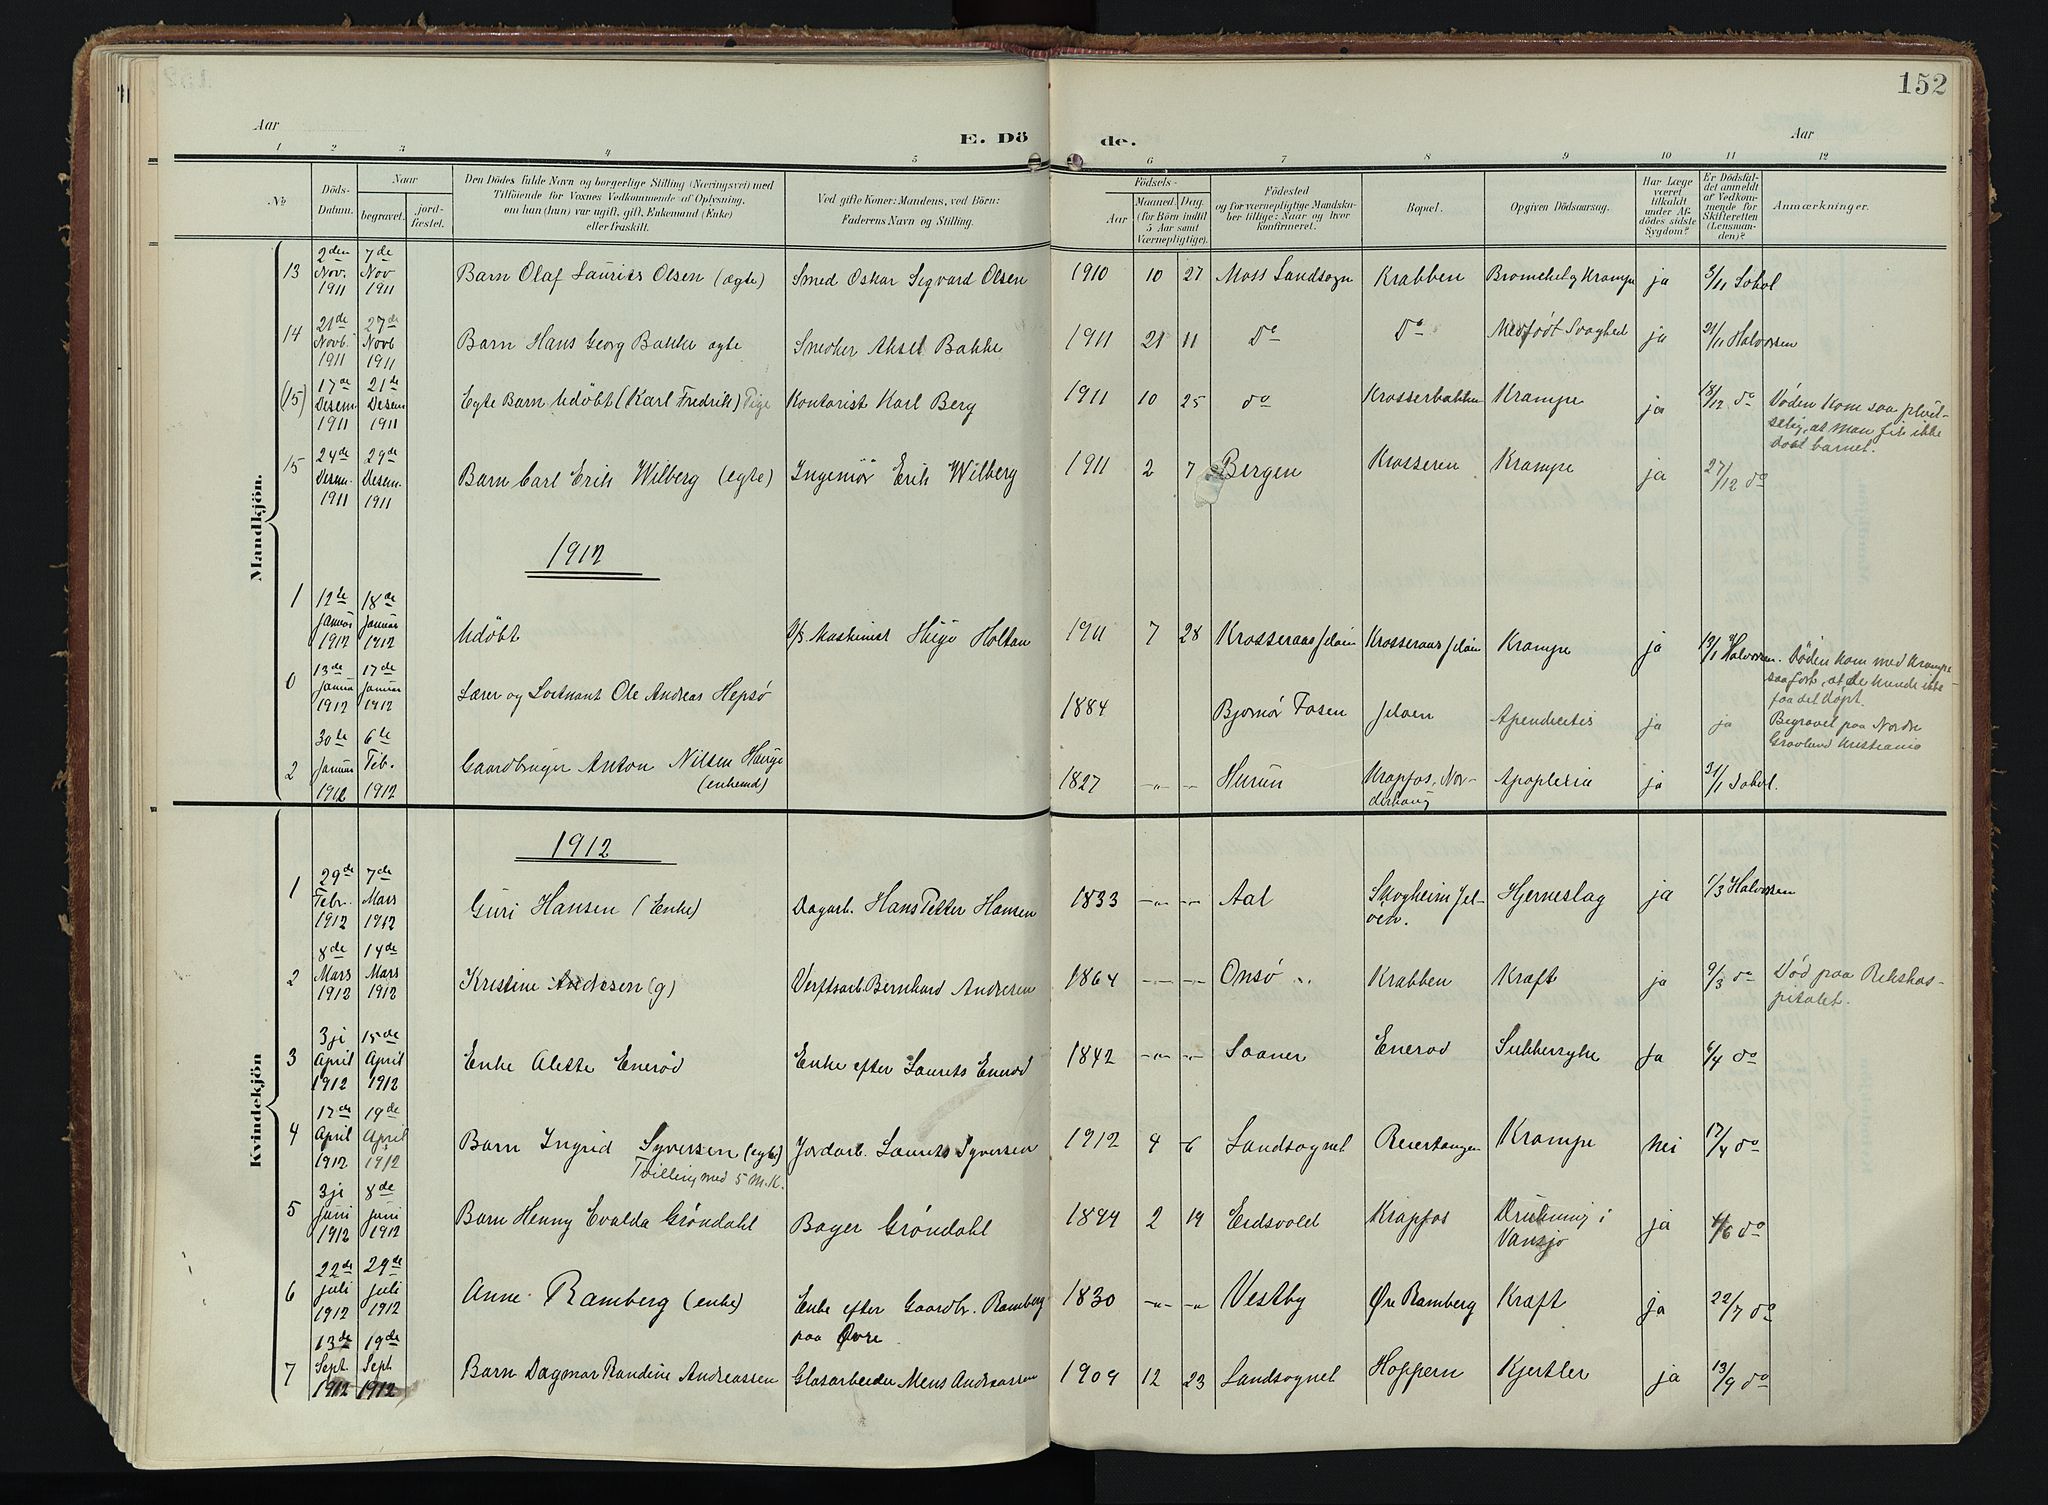 152
Aar
E. Döde.
Aar
1 2 3 4 5 6 7 8 9 10 11 12
No
Döds-Datum.
Naar
begravet.
jord-fæstet.
Den Dödes fulde Navn og borgerlige Stilling (Næringsvei) med
Tilföiende for Voxnes Vedkommende af Oplysning,
om han (hun) var ugift, gift, Enkemand (Enke)
eller fraskilt.
Ved gifte Koner: Mandens, ved Börn:
Faderens Navn og Stilling.
Födsels-
Aar
Maaned. Dag.
(for Börn indtil
5 Aar samt
Værnepligtige).
Födested
og for værnepligtige Mandskaber tillige: Naar og hvor
konfirmeret.
Bopæl.
Opgiven Dödsaarsag.
Har Læge
været
tilkaldt
under Afdödes sidste
Sygdom?
Er Dödsfaldet anmeldt
af Vedkommende for
Skifteretten
(Lensmanden)?
Anmærkninger.
Mandkjön.
13 2den Nov. 1911 7de Nov 1911 Barn Olaf Laurits Olsen (ægte) Smed Oskar Sigvard Olsen 1910 10 27 Moss Landsogn Krabben Bronchel og Krampe ja 3/11 Sohol
14 21de Novb. 1911 27de Novb 1911 Barn Hans Georg Bakke ægte Snedker Aksel Bakke 1911 21 11 Do Do Medfødt Svaghed ja 21/11 Halvorsen
(15) 17de Desem. 1911 21de Desem 1911 Egte Barn Udøbt (Karl Fredrik) Kontorist Karl Berg 1911 10 25 do Krosserbakken Krampe ja 18/12 do Døden kom saa pludselig, at man fik ikke døbt barnet.
15 24de Desem. 1911 29de Desem. 1911 Barn Carl Erik Wilberg (egte) Ingeniør Erik Wilberg 1911 2 7 Bergen Krosseren Krampe ja 27/12 do
1912
1 12te Januar 1912 18de Januar 1912 Udøbt Maskinist Hugo Holtan 1911 7 28 Krosseraas Jeløen Krosseraas Jeløen Krampe ja 13/1 Halvorsen. Døden kom med Krampe saa fort, at de kunde ikke faa det døpt.
0 13de Januar 1912 17de Januar 1912 Lærer og Løitnant Ole Andreas Hepsø 1884 Bjørnør Fosen Jeløen Apendicitis ja ja Begravet paa Nordre Gravlund Kristiania
2 30te Januar 1912 6te Feb. 1912 Gaardbruger Anton Nilsen Hauge (enkemd) 1827 -"- -"- Hurum Krapfos, Norderhaug Apoplexia ja 31/1 Sohol.
Kvindekjön
1912
1 29de Febr. 1912 7de Mars 1912 Guri Hansen (Enke) Dagarb. Hans Petter Hansen 1833 -"- -"- Aal Skogheim Jeløen. Hjerneslag ja 1/3 Halvorsen
2 8de Mars 1912 14de Mars 1912 Kristine Andresen (g) Verftsarb. Bernhard Andresen 1864 -"- -"- Onsø Krabben Kraft ja 9/3 do Død paa Rikshospitalet.
3 3ji April 1912 15de April 1912 Enke Alette Enerød Enke efter Laurits Enerød 1842 -"- -"- Saaner Enerod Sukkersyke Ja 6/4 do
4 17de April 1912 19de April 1912 Barn Ingrid Syversen (egte) Tvilling med 5 M.K. Jordarb. Laurits Syversen 1912 4 6 Landsognet Reiertangen Krampe Nei 17/4 do
5 3ji Juni 1912 8de Juni 1912 Barn Henny Evalda Grøndahl Bager Grøndahl 1899 2 19 Eidsvold Krapfos Drukning i Vansjø ja 4/6 do
6 22de Juli 1912 29de Juli 1912 Anne Ramberg (enke) Enke efter Gaardbr. Ramberg paa Øvre 1830 -"- -"- Vestby Øvre Ramberg Kraft ja 22/7 do
7 13de Sept. 1912 19de Sept 1912 Barn Dagmar Randine Andreassen Glasarbeider Mens Andreassen 1909 12 23 Landsognet Hoppern Kjertler ja 13/9 do